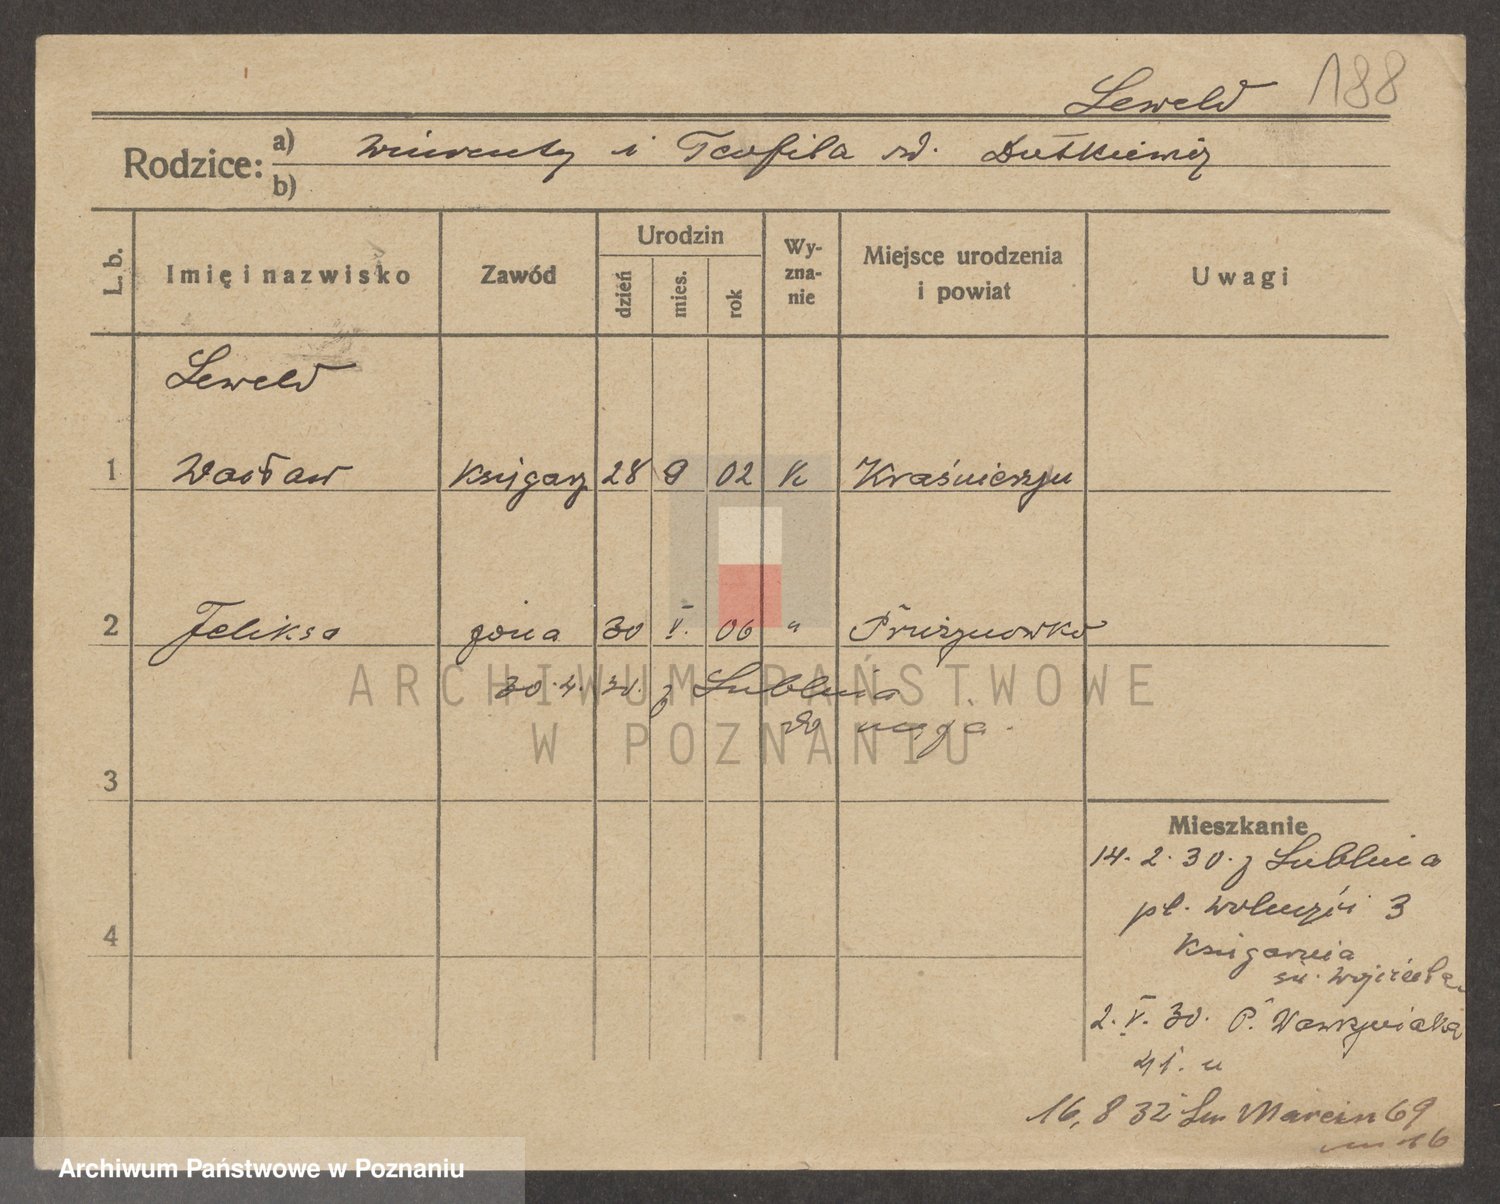 188
Leweld
Rodzice: a) Wincenty i Teofila rd. Dutkiewicz
b)
L. b.
Imię i nazwisko
Zawód
Urodzin
dzień
mies.
rok
Wy-
zna-
nie
Miejsce urodzenia
i powiat
Uwagi
Leweld
1 Wacław księgarz 28 9 02 k Kraśnierzyn
2 Feliksa żona 30 V. 06 " Prużynowko
30.4.30. z Lublina
do męża.
3
4
Mieszkanie
14. 2. 30. z Lublina
pl. Wolności 3
Księgarnia
św. Wojciecha
2. V. 30. P. Wawrzyniaka
41.
16, 8 32 Św Marcin 69
m 16
ARCHIWUM PAŃSTWOWE
W POZNANIU
Archiwum Państwowe w Poznaniu